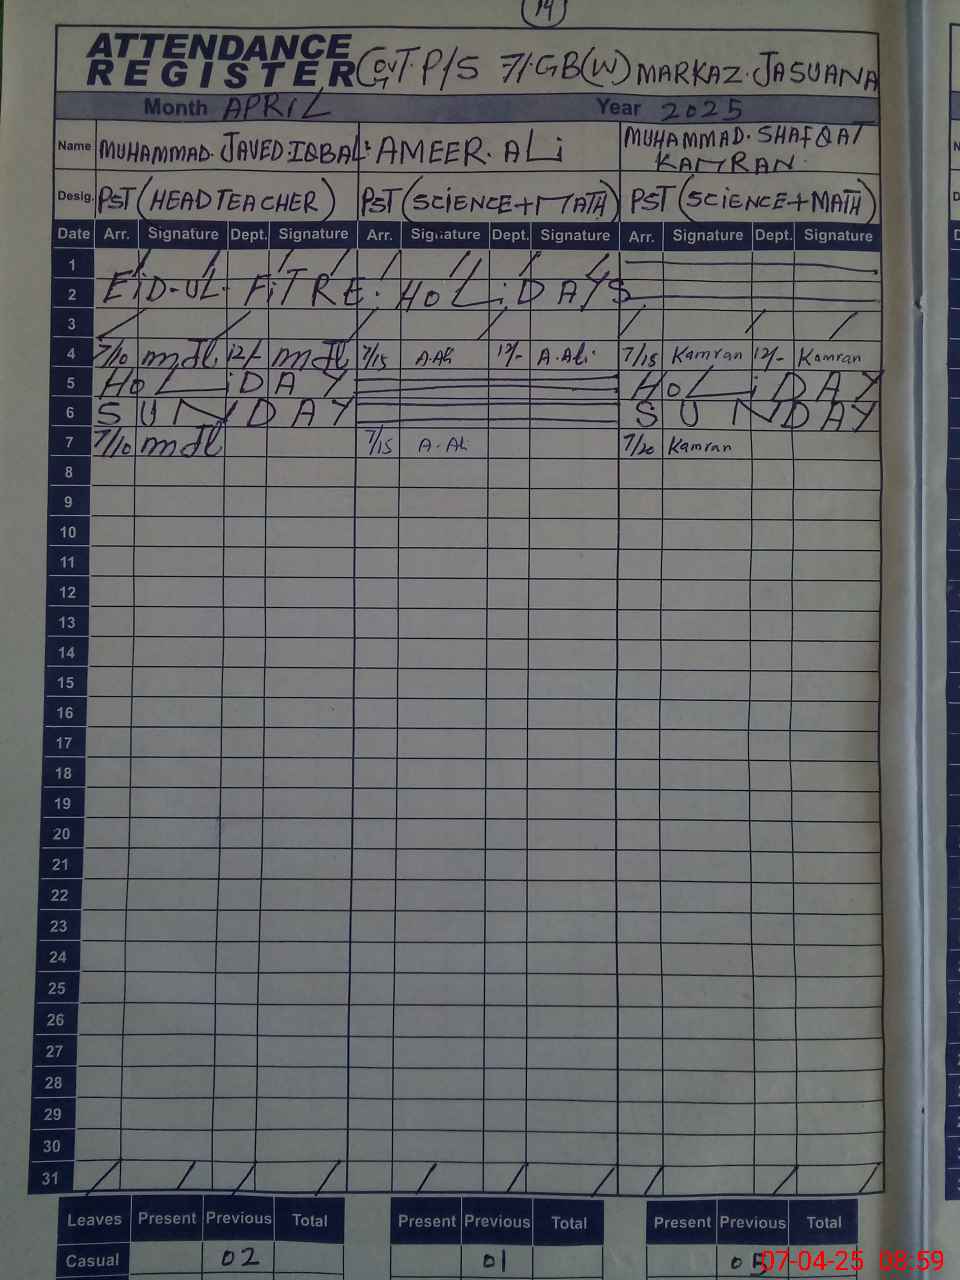 14
ATTENDANCE
REGISTER GOVT. P/S 71.GB(W) MARKAZ. JASUANA
Month APRIL Year 2025
Name MUHAMMAD. JAVED IQBAL AMEER. ALi MUHAMMAD. SHAFQAT KAMRAN.
Desig. PST (HEAD TEACHER) PST (SCiENCE+MATH) PST (SCIENCE+MATH)
Date Arr. Signature Dept. Signature Arr. Signature Dept. Signature Arr. Signature Dept. Signature
1
2 EiD-UL- FiTRE. HOLiDAYS.
3
4 7/10 12/- 7/15 A.Ali 12/- A.Ali 7/15 Kamran 12/- Kamran
5 HOLiDAY HOLiDAY
6 SUNDAY SUNDAY
7 7/10 7/15 A.Ali 7/20 Kamran
8
9
10
11
12
13
14
15
16
17
18
19
20
21
22
23
24
25
26
27
28
29
30
31
Leaves Present Previous Total Present Previous Total Present Previous Total
Casual 02 01
07-04-25 08:59